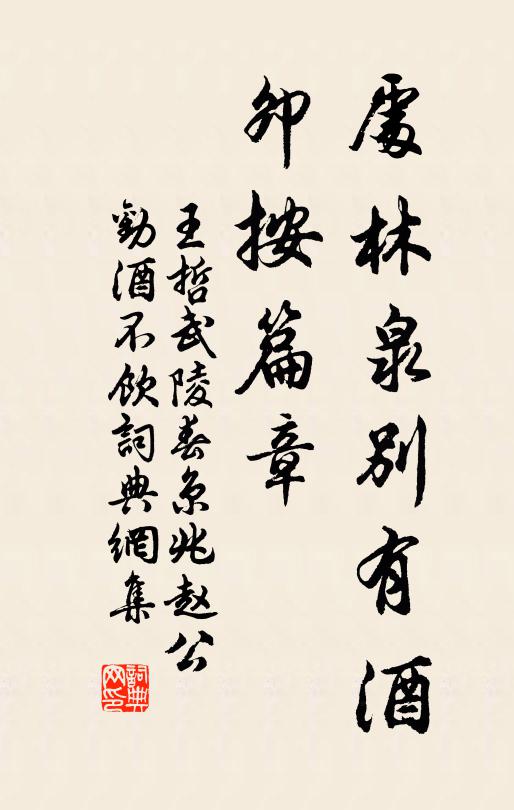 處林泉別有酒
卯按篇章
王哲武陵春京兆赵公
勸酒不飲詞典網集
詞典
网印